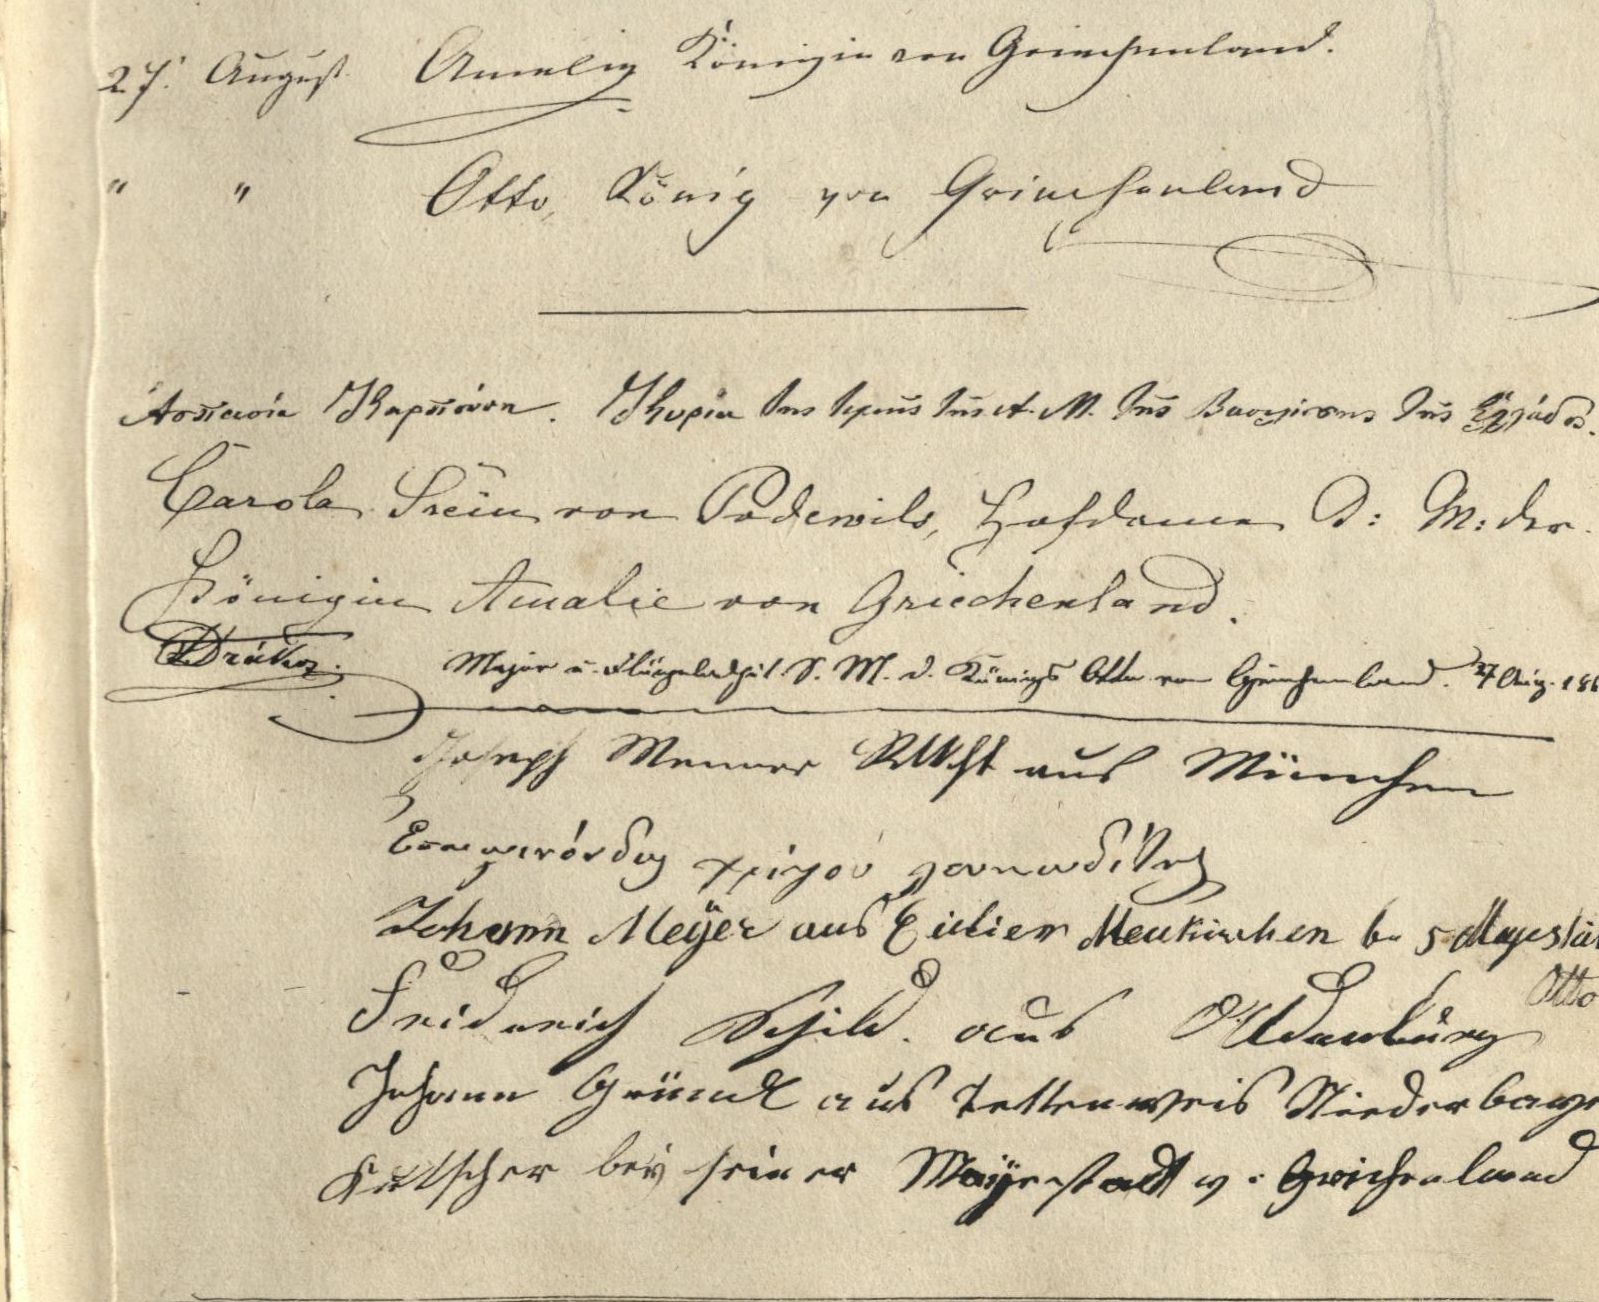 27. August Amalie Königin von Griechenland.
" " Otto, König von Griechenland
Ἀσπασία Καρπούνη. Κυρία τῆς τιμῆς τῆς Α. Μ. τῆς Βασιλίσσης τῆς Ἑλλάδος.
Carola Freiin von Podewils, Hofdame I: M: der
Königin Amalie von Griechenland.
Drákos. Major u. Flügeladjut. S. M. d. Königs Otto von Griechenland. 27 Aug. 186
Joseph Menner aus München
Επαμινόνδας
Johann Meÿer aus Neukirchen b. S Mayestät
Otto
Friderich Schild. aus Oldenburg
Johann Gründl aus Tettenweis Niederbayr
Kutscher beÿ seiner Mayestadt v: Grichenland